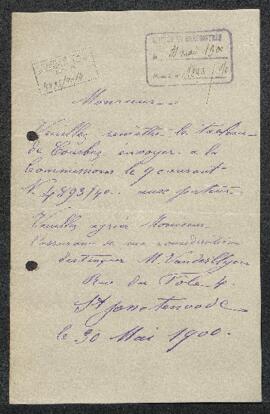 30 mai 1900
Monsieur
Veuillez remettre le tableau
de Courbet envoyer a la
Commission le 9 courant
N. 4893/40. aux porteur.
Veuillez agréer Monsieur
l'assurance de ma consideration
distinguer M.
Rue du
St Josse ten noode
le 30 Mai 1900.